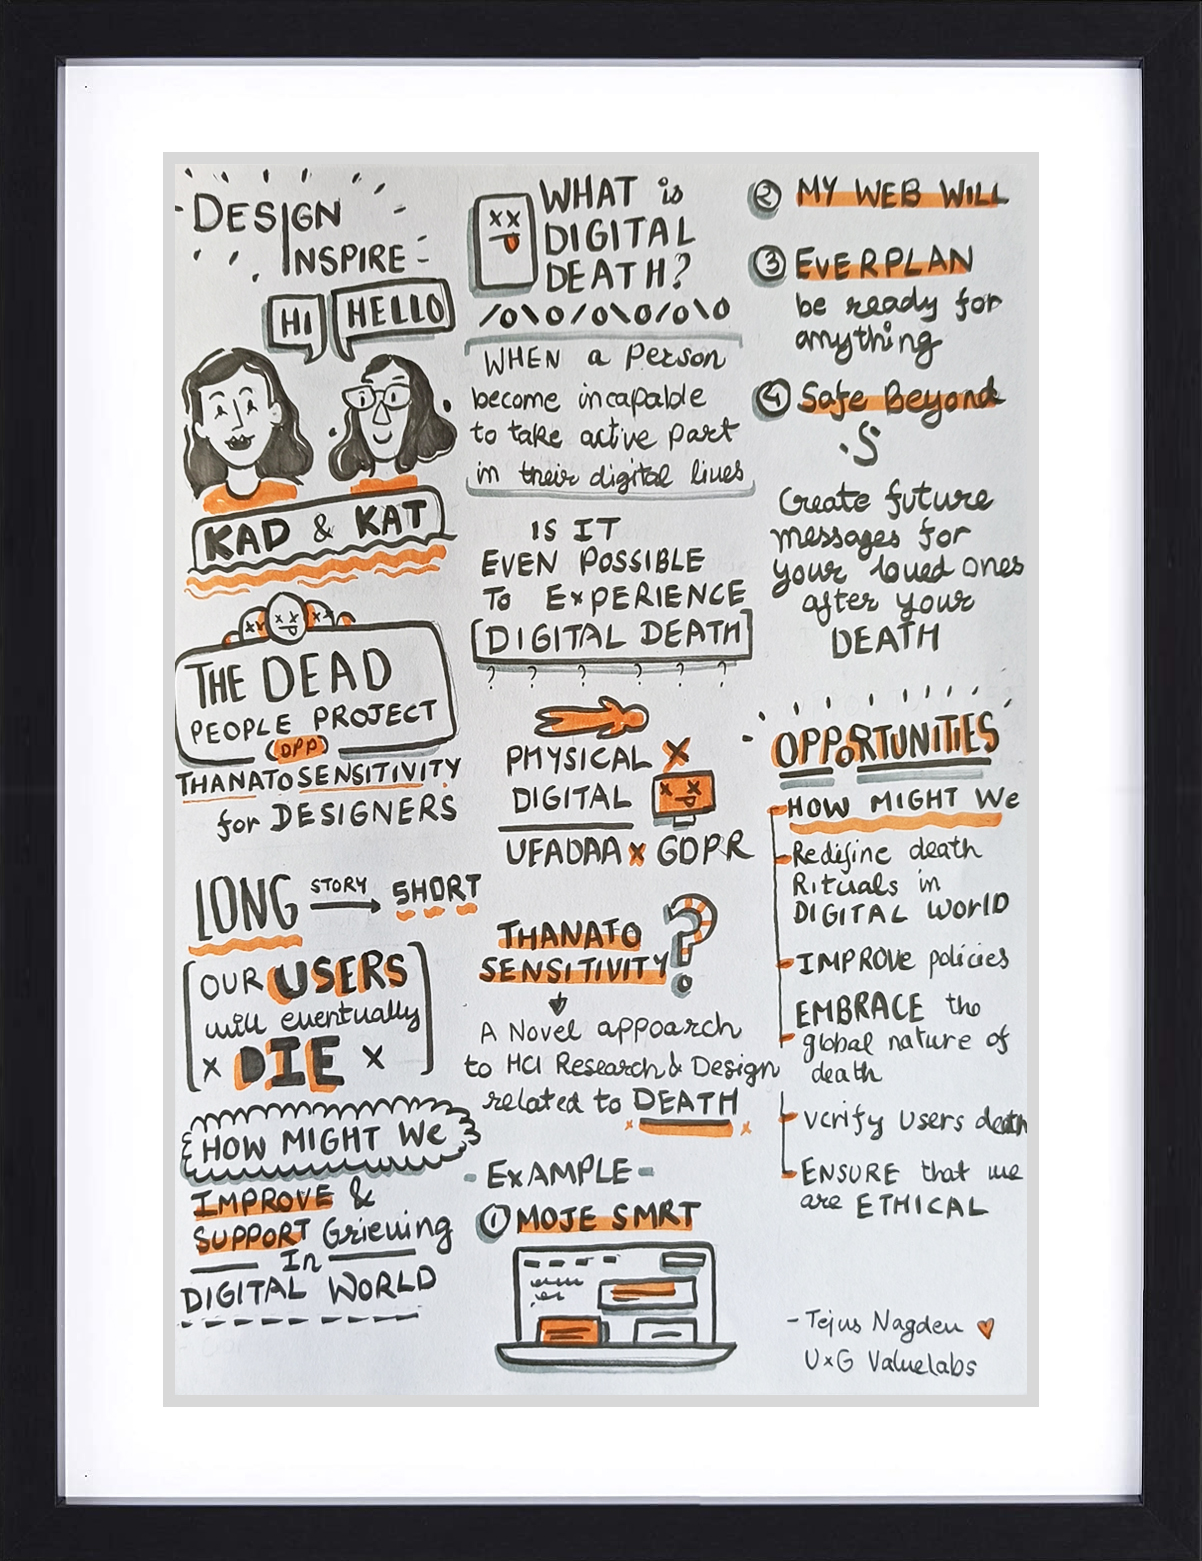 DESIGN
INSPIRE
HI
HELLO
KAD & KAT
THE DEAD
PEOPLE PROJECT
(DPP)
THANATOSENSITIVITY
for DESIGNERS
LONG STORY SHORT
OUR USERS
will eventually
x DIE x
HOW MIGHT We
IMPROVE &
SUPPORT Grieving
In
DIGITAL WORLD
WHAT is
DIGITAL
DEATH?
WHEN a Person
become incapable
to take active part
in their digital lives
IS IT
EVEN POSSIBLE
To ExPERIENCE
[DIGITAL DEATH]
? ? ? ? ? ?
PHYSICAL X
DIGITAL
UFADAA x GDPR
THANATO
SENSITIVITY?
A Novel appoarch
to HCI Research & Design
related to DEATH
x x
- ExAMPLE -
① MOJE SMRT
② MY WEB WILL
③ EVERPLAN
be ready for
anything
④ Safe Beyond
S
Create future
messages for
your loved ones
after your
DEATH
OPPORTUNITIES
HOW MIGHT We
- Redifine death
Rituals in
DIGITAL WORlD
- IMPROVe policies
EMBRACE the
- global nature of
death
- verify Users death
- ENSURE that we
are ETHICAL
- Tejus Nagdeu
UxG Valuelabs